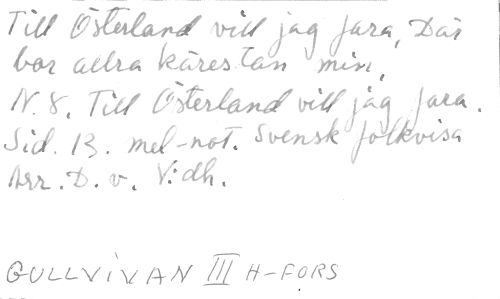 Till Österland vill jag fara, Där
bor allra kärestan min,
N. 8, Till Österland vill jag fara.
Sid. 13. mel-not. Svensk folkvisa
Arr. D. v. V:dh.
GULLVIVAN III H-FORS